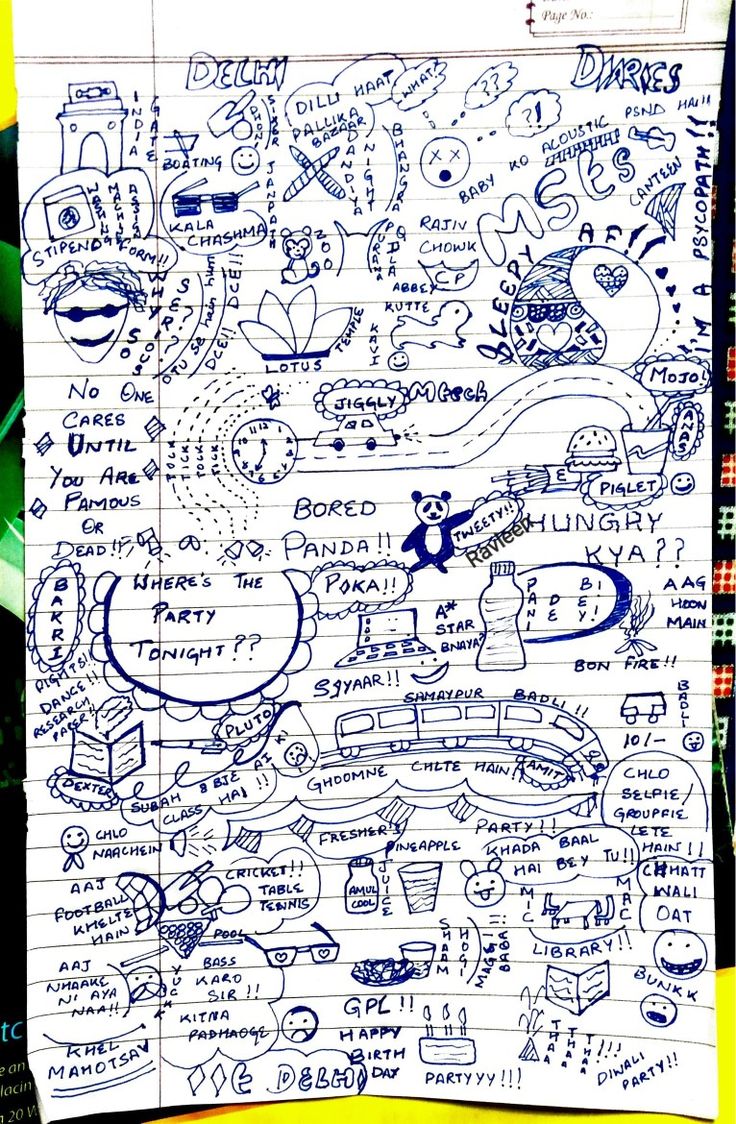 Page No.:
DELHI DIARIES
INDIA GATE
BOATING
DILLI HAAT
PALLIKA BAZAAR
JANPATH
DANDIYA NIGHT
BHANGRA
WHAT!
???
?!
BABY KO ACOUSTIC PSND HAI!!
MSES
CANTEEN
I'M A PSYCOPATH!!
WASHING MACHINE
STIPEND FORM!!
KALA
CHASHMA
ZOO
PURANA QILA
RAJIV
CHOWK
CP
ABBEY
KUTTE
KAVI
SLEEPY AF!!
WHY SO SERIOUS??
DTU se hain hum
DCE!! DCE!!
LOTUS TEMPLE
NO ONE
CARES
UNTIL
YOU ARE
FAMOUS
OR
DEAD!!
TICK TOCK
12 1 2 3 4 5 6 7 8 9 10 11
JIGGLY
Mtech
MOJO!
ANAS
PIGLET
BORED
PANDA!!
TWEETY!!
Ravleen
HUNGRY
KYA??
POKA!!
BAKRI
WHERE'S THE
PARTY
TONIGHT??
A*
STAR
BNAYA?
SGYAAR!!
PANI DE DE BEY!
AAG
HOON
MAIN
BON FIRE!!
RIGHTS!!
DANCE!!
RESEARCH
PAPER!
PLUTO
DEXTER
SUBAH 8 BJE KI
CLASS HAI!!
SAMAYPUR BADLI!!
GHOOMNE CHLTE HAIN!!
AMIT
BADLI
10/-
CHLO
SELFIE/
GROUPFIE
LETE
HAIN!!
CHLO
NAACHEIN
FRESHER'S PARTY!!
AAJ
FOOTBALL
KHELTE
HAIN
CRICKET!!
TABLE
TENNIS
POOL
PINEAPPLE
JUICE
AMUL
COOL
KHADA BAAL
HAI BEY TU!!
MIC MAC
CHATT
WALI
OAT
AAJ
NHAAKE
NI AYA
NAA!!
YUCKK
BASS
KARO
SIR!!
KITNA
PADHAOGE
SHAAM HOGI
MAGGI BABA!!
LIBRARY!!
BUNKK
GPL!!
HAPPY
BIRTH
DAY
PARTYYY!!!
THAA THAA THAA!!!
DIWALI
PARTY!!
KHEL
MAHOTSAV
DELHI